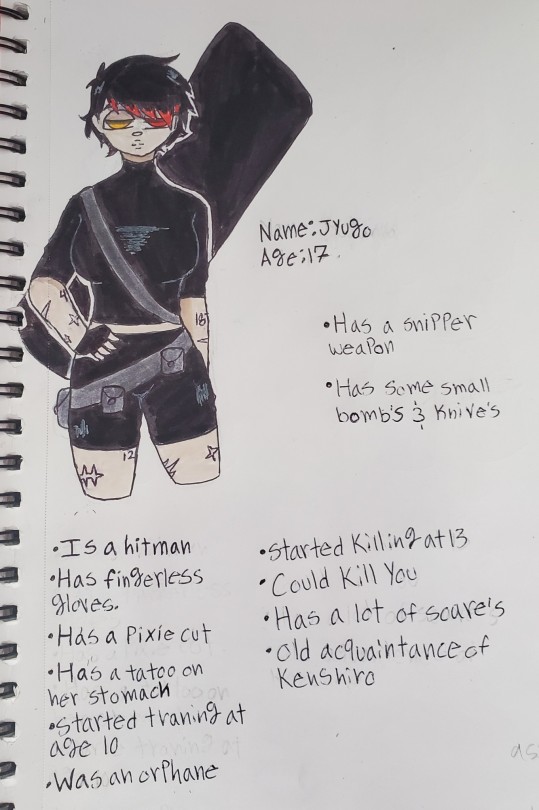 Name: Jyugo
Age: 17.
•Has a snipper
weapon
•Has some small
bomb's & Knive's
18
12
•Is a hitman
•Has fingerless
gloves.
•Has a Pixie cut
•Has a tatoo on
her stomach
•Started traning at
age 10
•Was an orphane
•Started Killing at 13
•Could Kill You
•Has a lot of scare's
•Old acquaintance of
Kenshiro
as